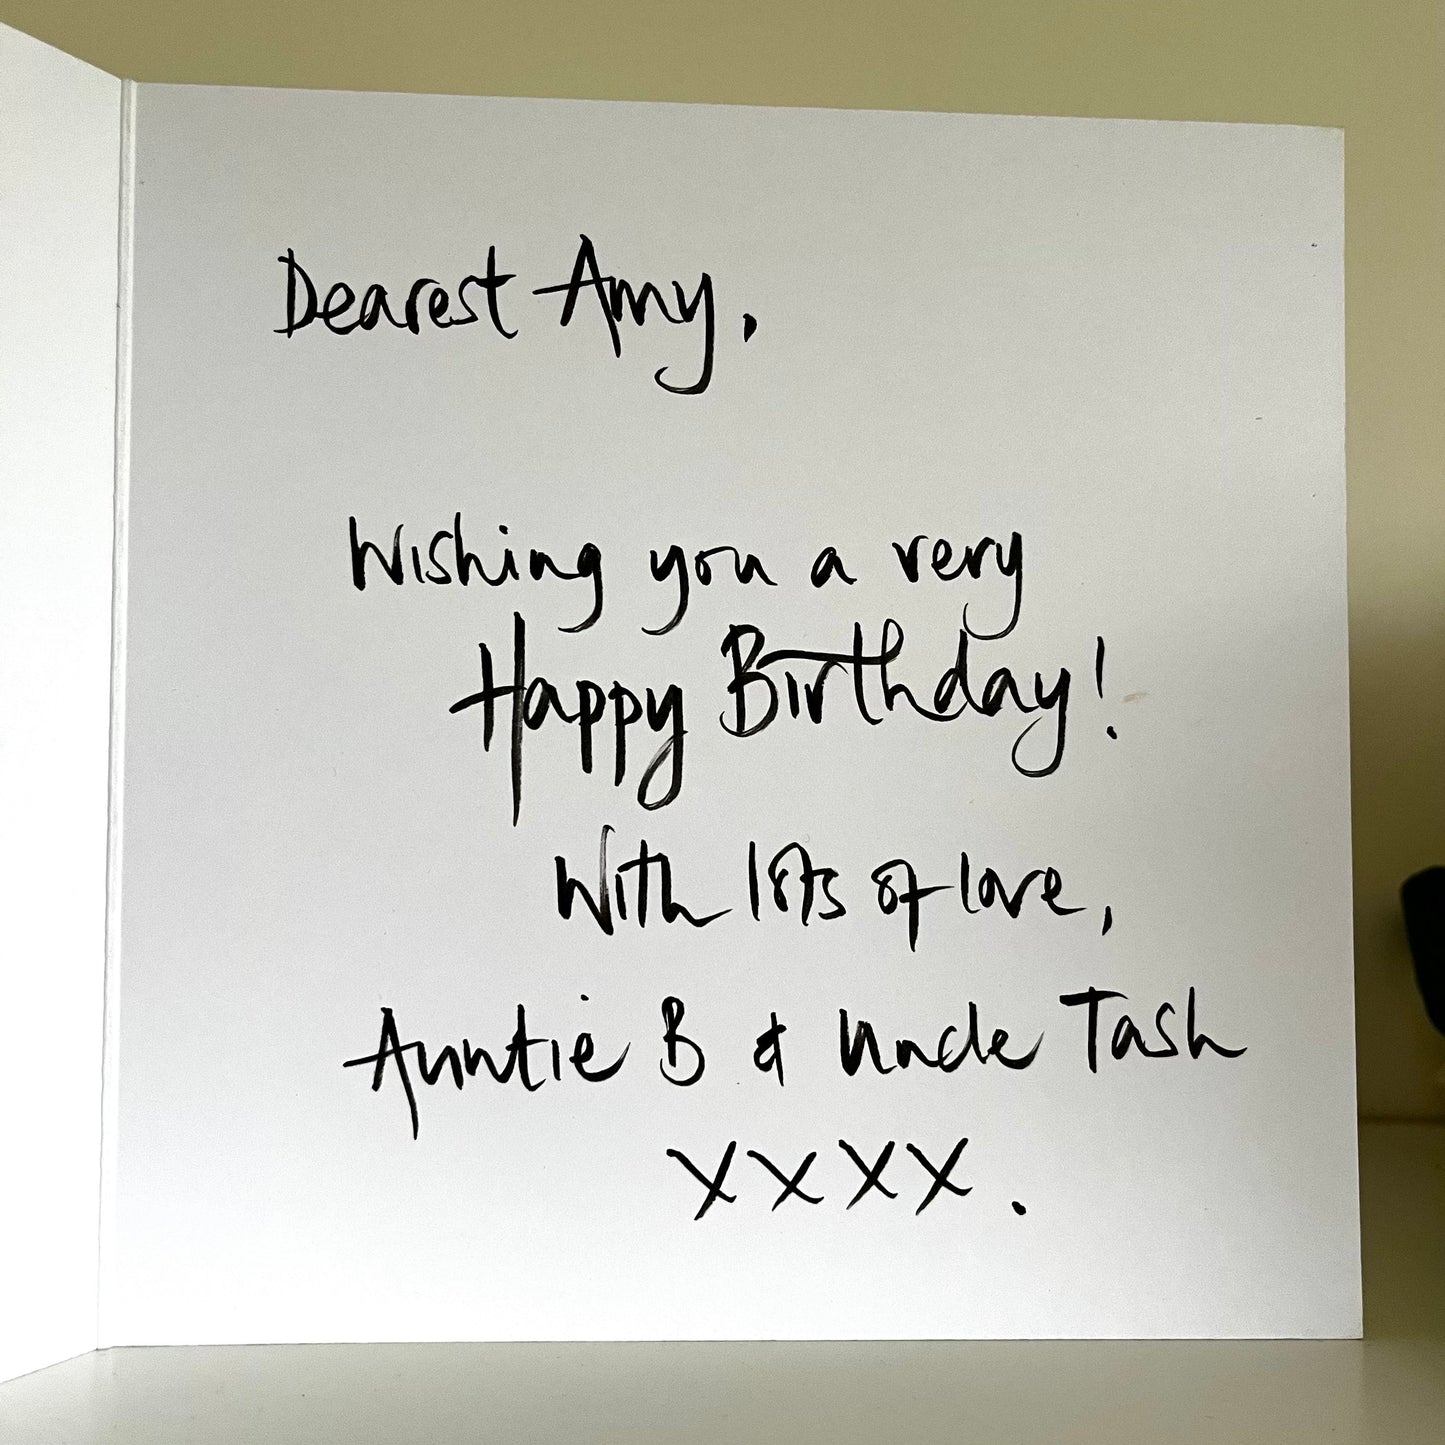 Dearest Amy,
Wishing you a very
Happy Birthday!
With lots of love,
Auntie B & Uncle Tash
XXXX.